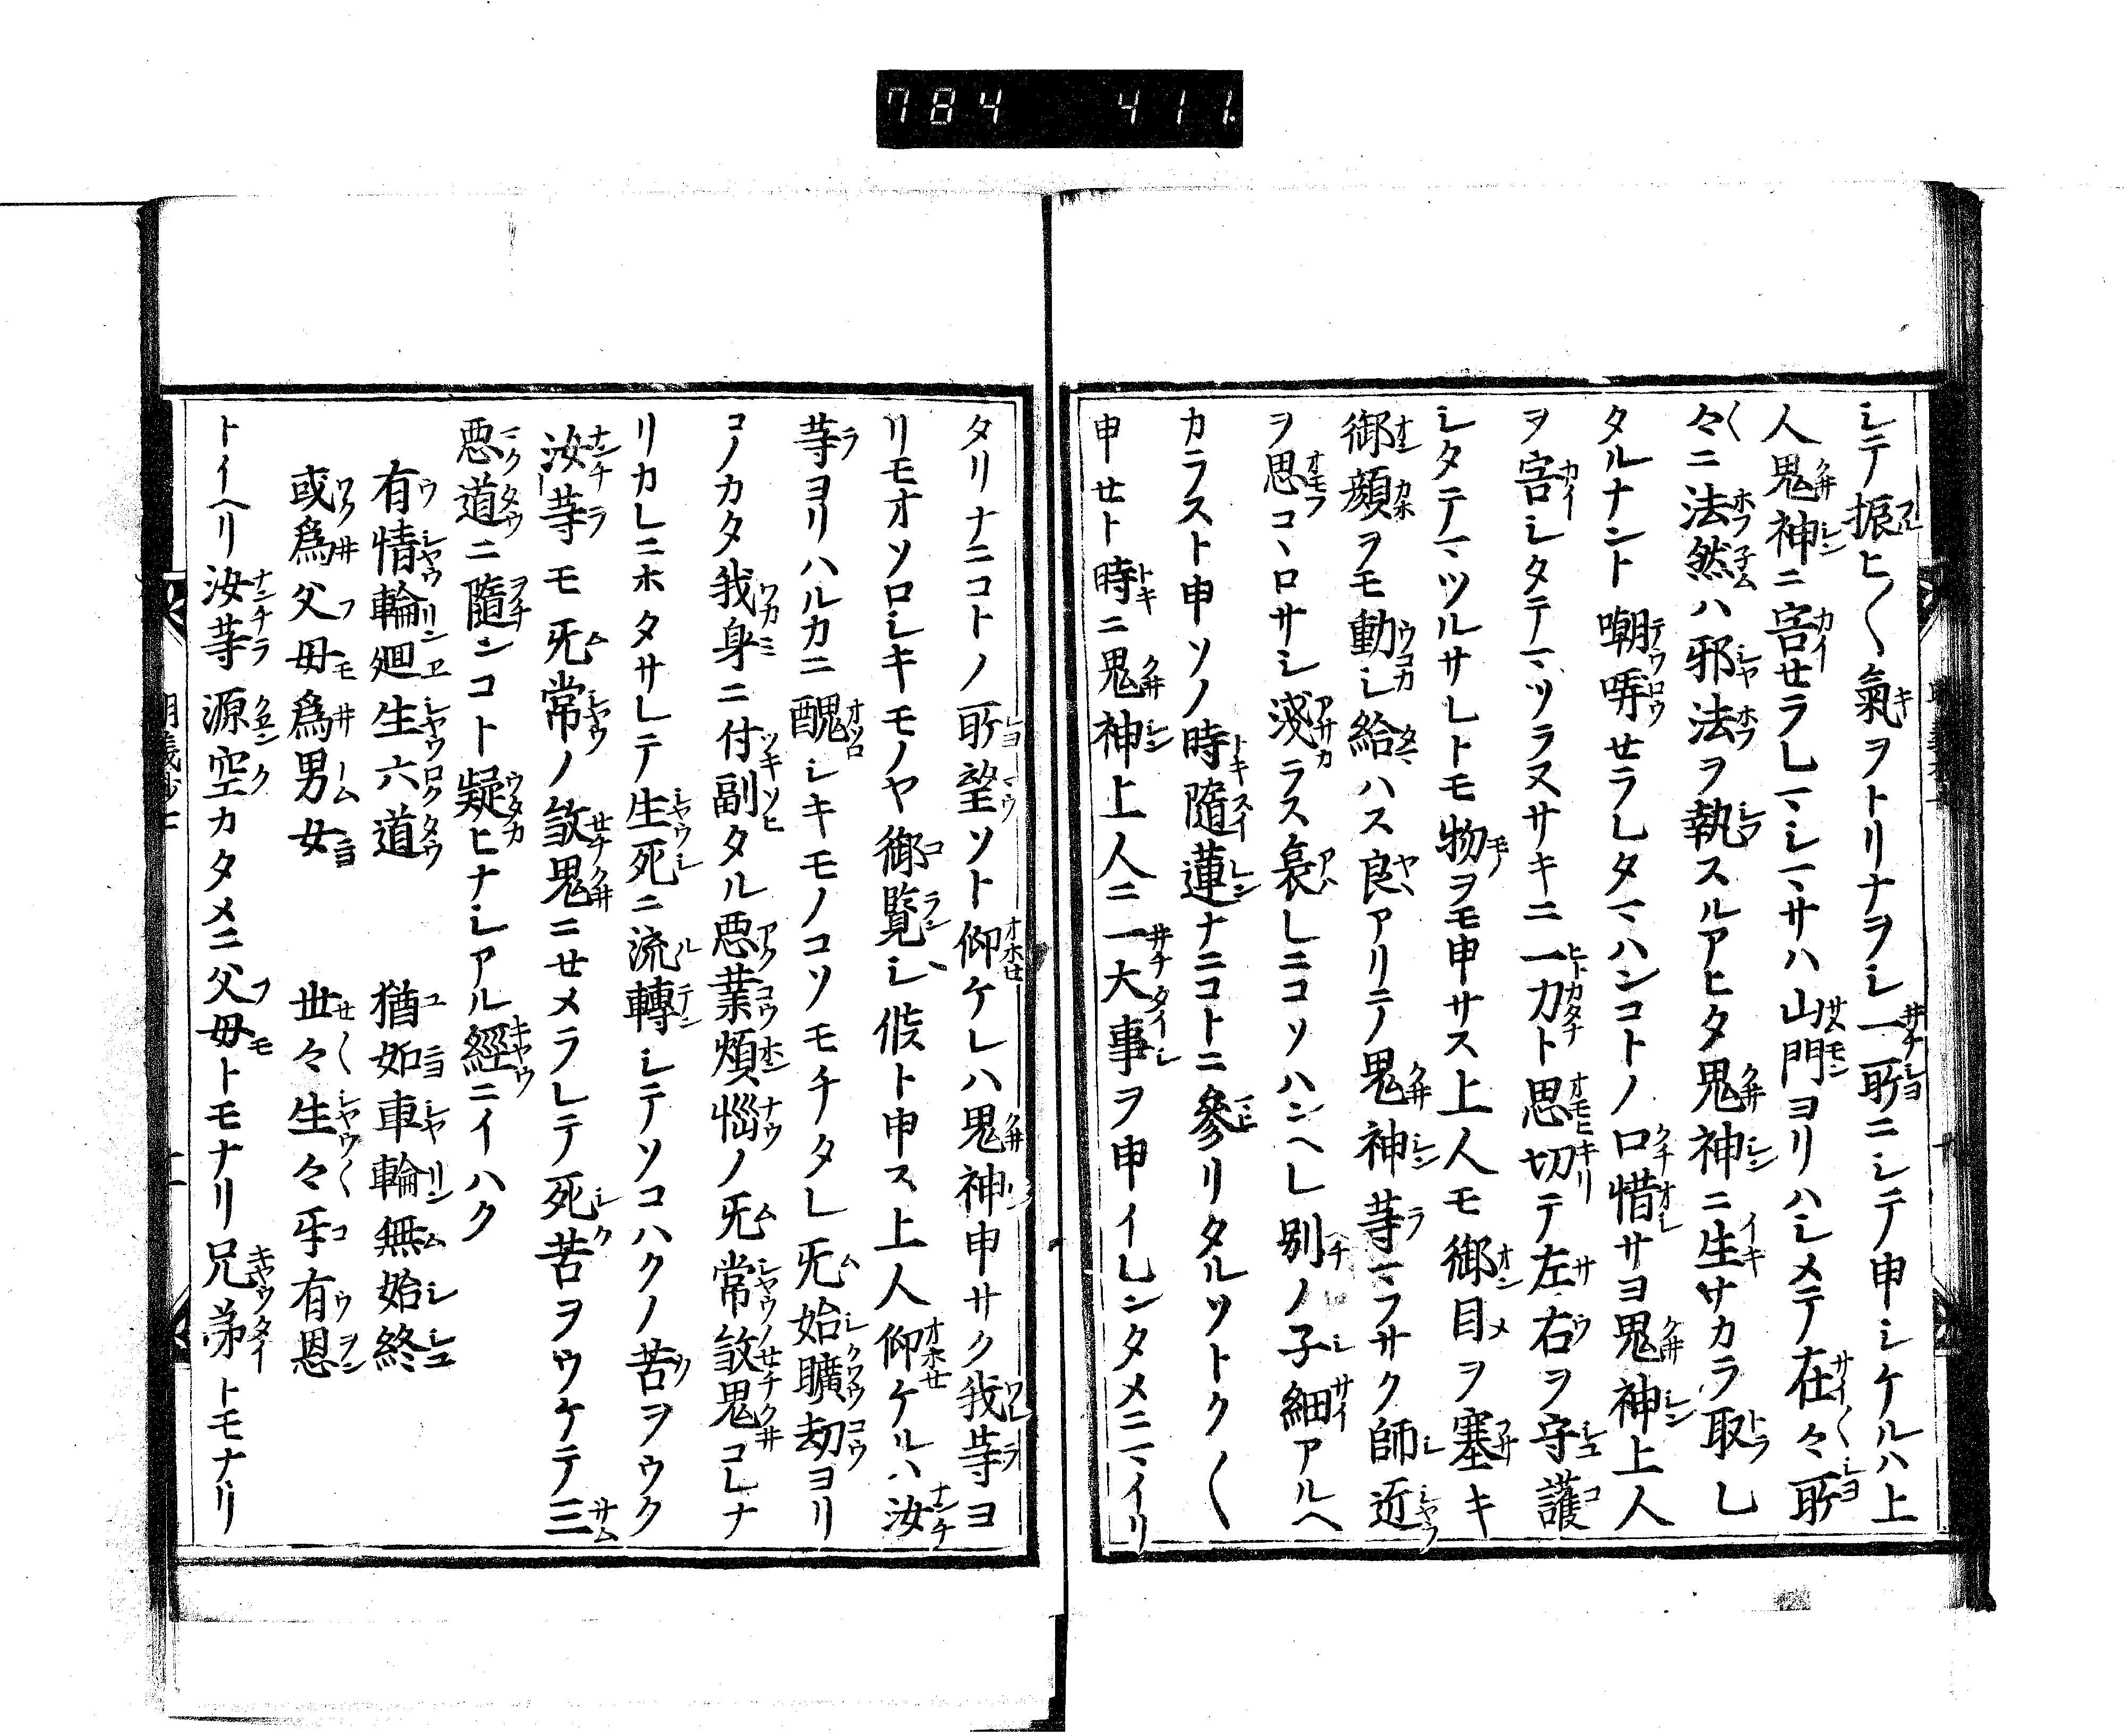 784 411
シテ振ヒ〱氣ヲトリナヲシ一所ニシテ申シケルハ上
人鬼神ニ害セラレマシマサハ山門ヨリハシメテ在々所
々ニ法然ハ邪法ヲ執スルアヒタ鬼神ニ生ナカラ取レ
タルナント嘲哢セラレタマハンコトノ口惜サヨ鬼神上人
ヲ害シタテマツラヌサキニ一刀ト思切テ左右ヲ守護
シタテマツルサレトモ物ヲモ申サス上人モ御目ヲ塞キ
御顔ヲモ動シ給ハス良アリテ鬼神等マフサク師近
ヲ思コヽロサシ淺ラス哀レニコソハンヘレ別ノ子細アルヘ
カラスト申ソノ時隨蓮ナニコトニ參リタルソトク〱
申セト時ニ鬼神上人ニ一大事ヲ申イレンタメニマイリ
タリナニコトノ所望ソト仰ケレハ鬼神申サク我等ヨ
リモオソロシキモノヤ御覧シ候ト申ス上人仰ケルハ汝
等ヨリハルカニ醜シキモノコソモチタレ无始曠劫ヨリ
コノカタ我身ニ付副タル悪業煩惱ノ无常殺鬼コレナ
リカレニホタサレテ生死ニ流轉シテソコハクノ苦ヲウク
汝等モ无常ノ殺鬼ニセメラレテ死苦ヲウケテ三
悪道ニ隨ンコト疑ヒナシアル經ニイハク
有情輪廻生六道　猶如車輪無始終
或爲父母爲男女　世々生々互有恩
トイヘリ汝等源空カタメニ父母トモナリ兄弟トモナリ